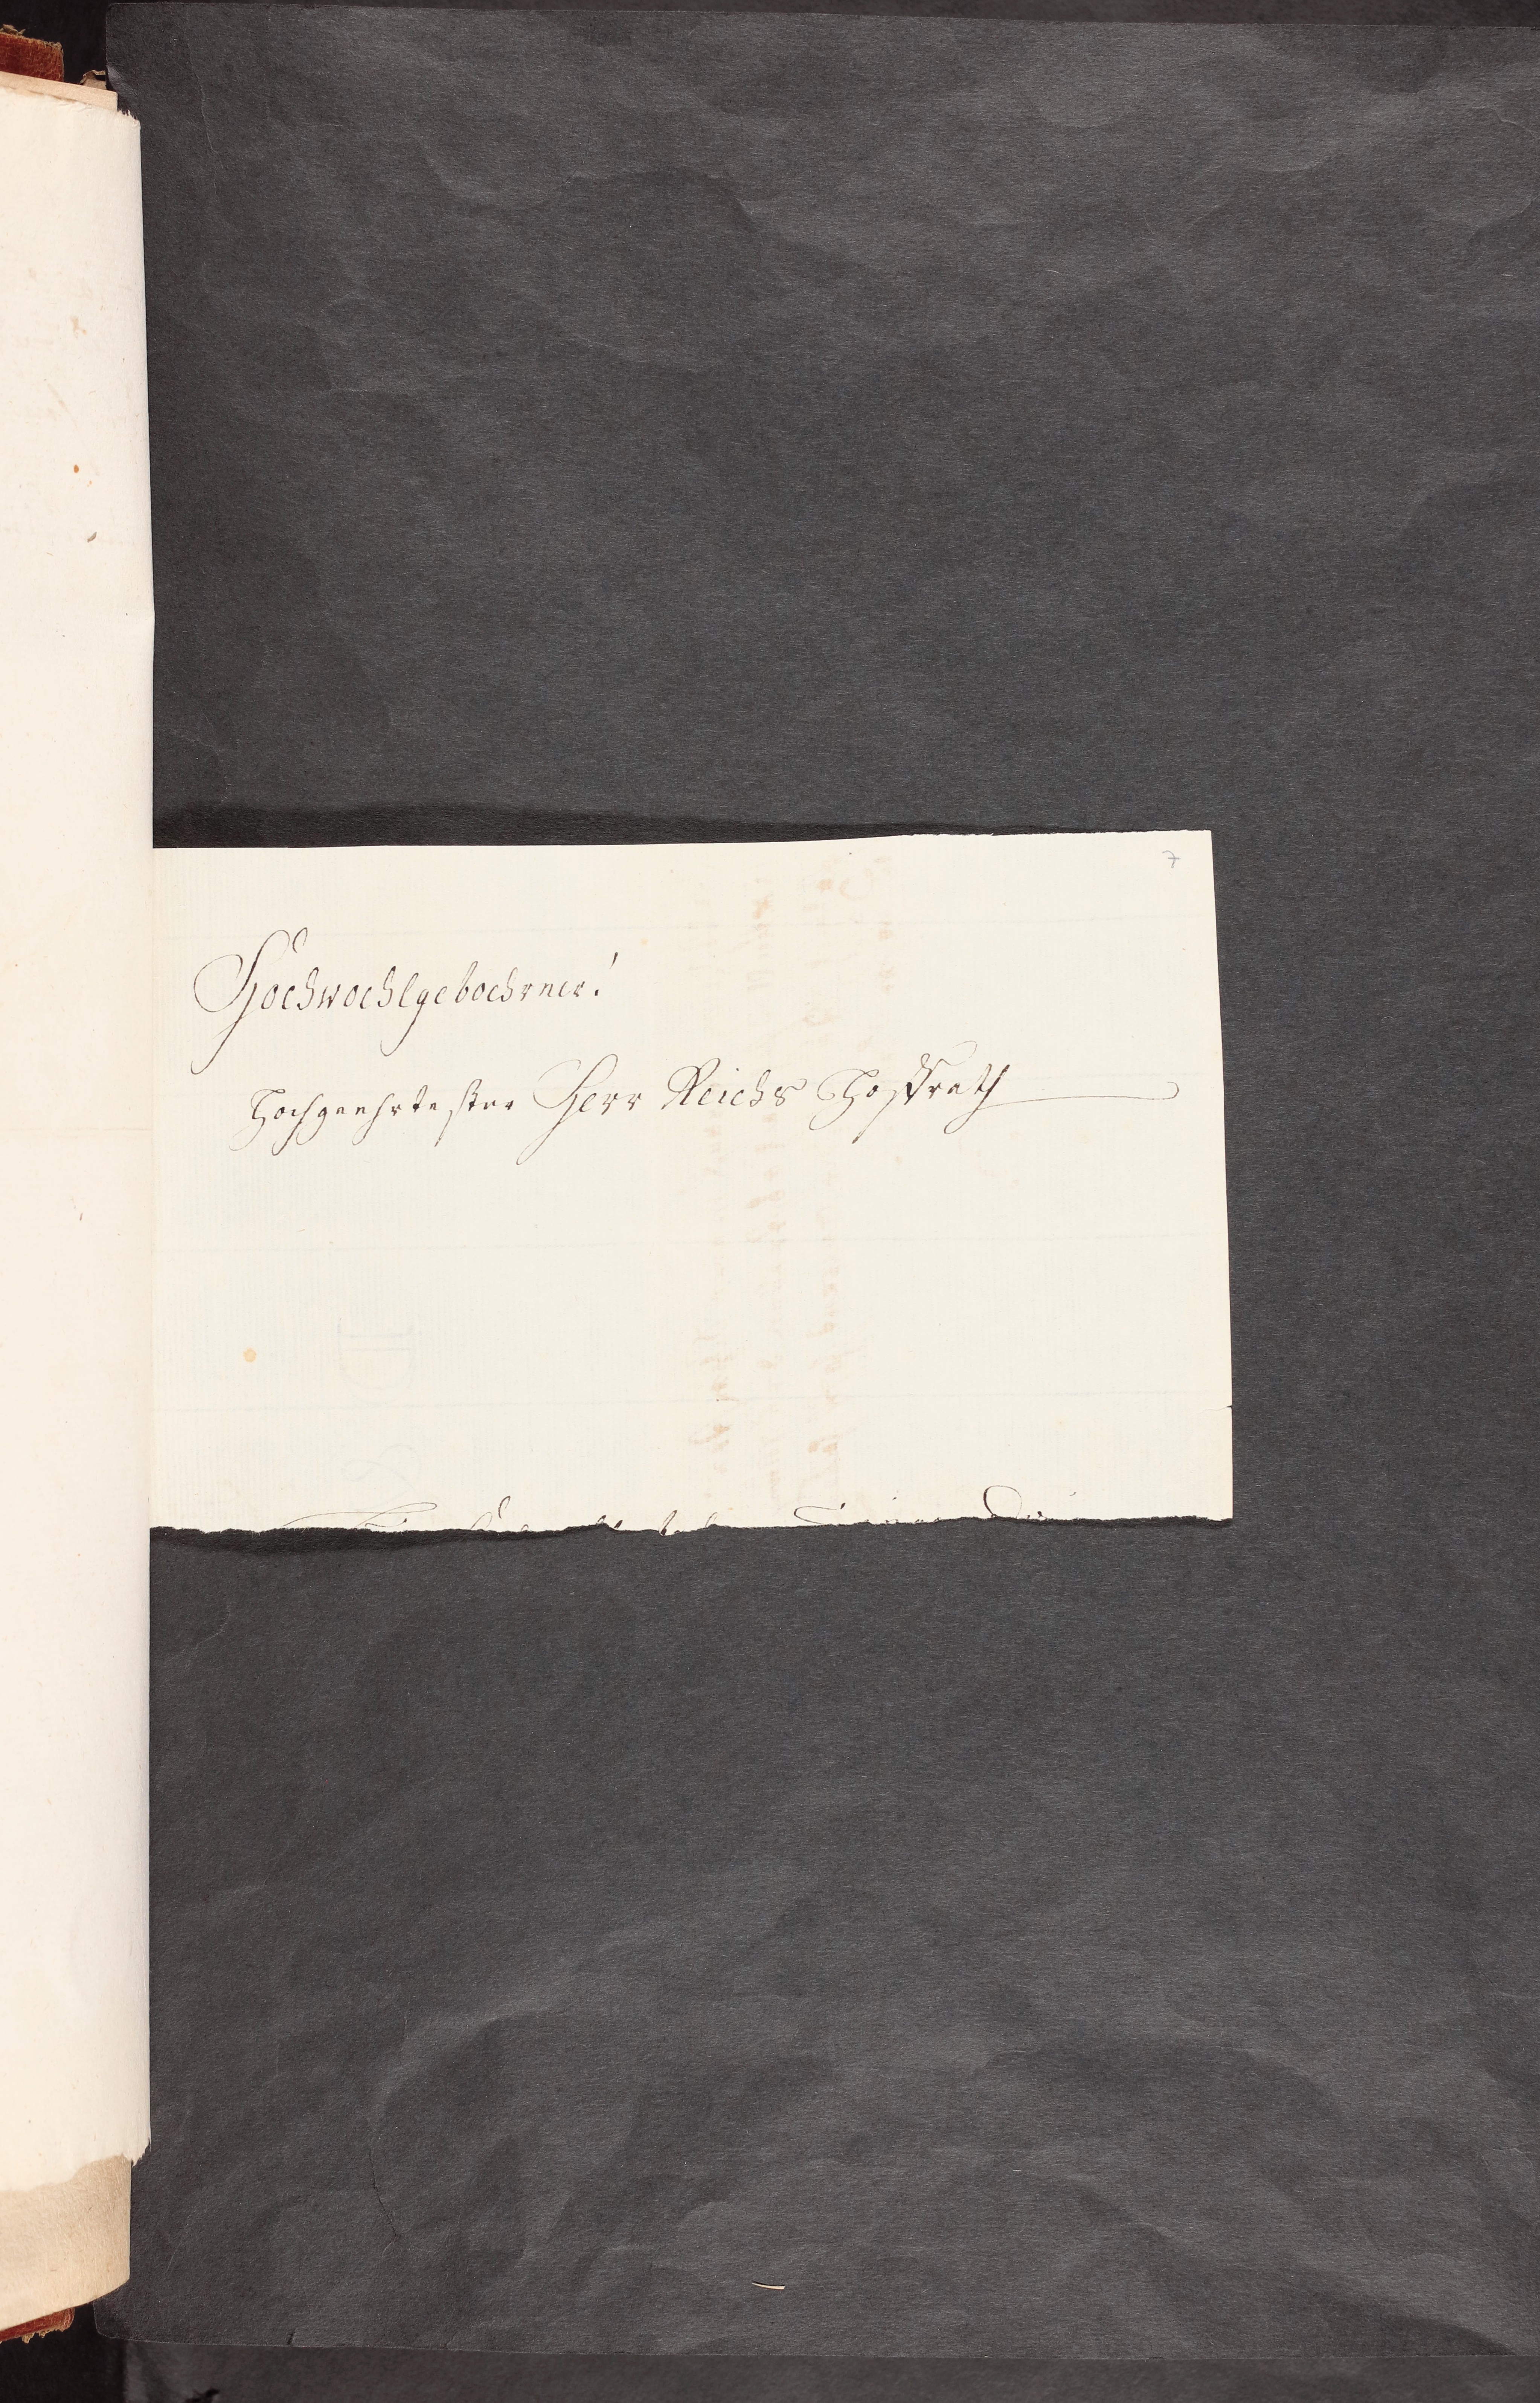 7
Hochwohlgebohrner!
Hochgeehrtester Herr Reichs Hoffrath